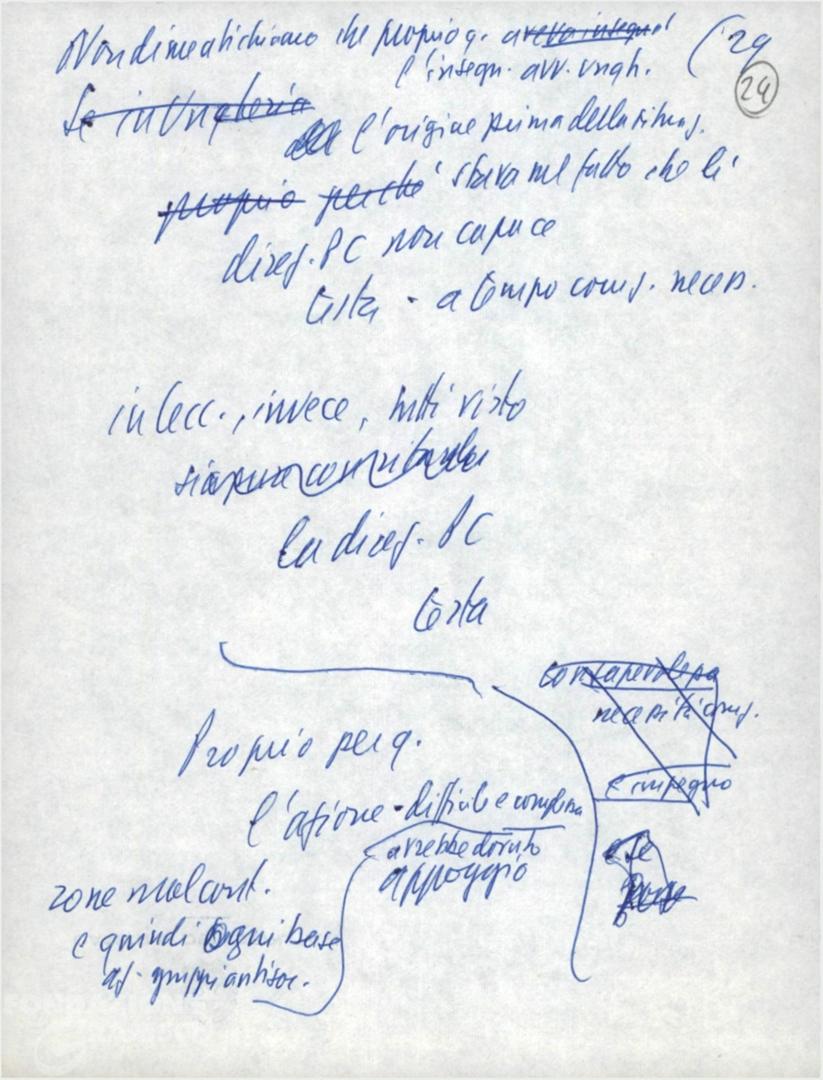 Non dimentichiamo che proprio q. aveva insegn.
(29
l'insegn. avv. ungh.
24
Se in Ungheria
l'origine prima della situaz.
proprio perché stava nel fatto che lì
direz. PC non capace
testa - a tempo corr. necess.
in Cec., invece, tutti visto
sia pur contrib
la direz. PC
testa
consapevolezza
necessità corr.
Proprio per q.
e impegno
l'azione - difficile e complessa
avrebbe dovuto
e se
appoggio
zone malcont.
e quindi ogni base
az. gruppi antisoc.